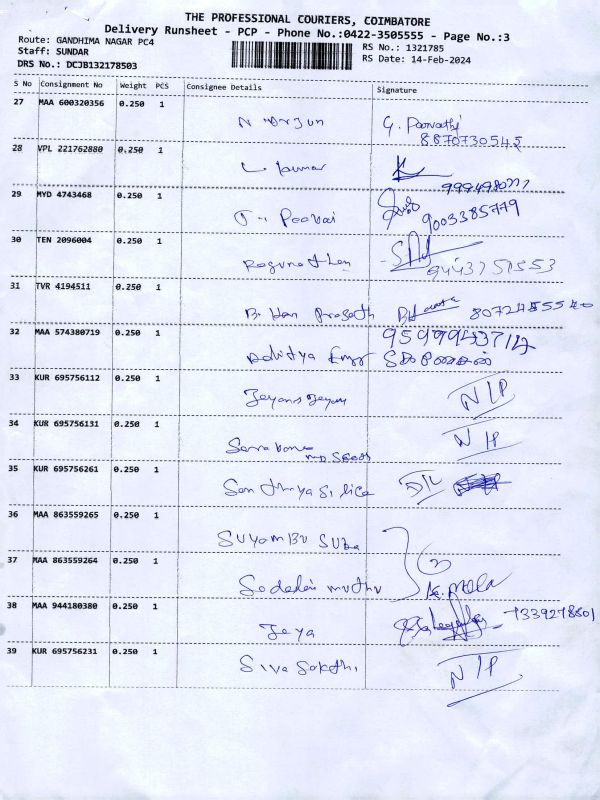 THE PROFESSIONAL COURIERS, COIMBATORE
Delivery Runsheet - PCP - Phone No.:0422-3505555 - Page No.:3
Route: GANDHIMA NAGAR PC4
Staff: SUNDAR
DRS No.: DCJB132178503
RS No.: 1321785
RS Date: 14-Feb-2024
S No Consignment No Weight PCS Consignee Details Signature
27 MAA 600320356 0.250 1
N Arjun G. Poorvathi
8870730545
28 VPL 221762880 0.250 1
L. Kumar
29 MYD 4743468 0.250 1
T. Poovai 9003385779
30 TEN 2096004 0.250 1
Ragunathan 9443751553
31 TVR 4194511 0.250 1
B. Hari Prasath
32 MAA 574380719 0.250 1
Adhitya
33 KUR 695756112 0.250 1
N/P
34 KUR 695756131 0.250 1
Saravana N/P
35 KUR 695756261 0.250 1
Santhiya Silica D/L
36 MAA 863559265 0.250 1
Suyambu Suba
37 MAA 863559264 0.250 1
Sadalai muthu
38 MAA 944180380 0.250 1
Jeya 7339278801
39 KUR 695756231 0.250 1
Siva Sakthi N/P